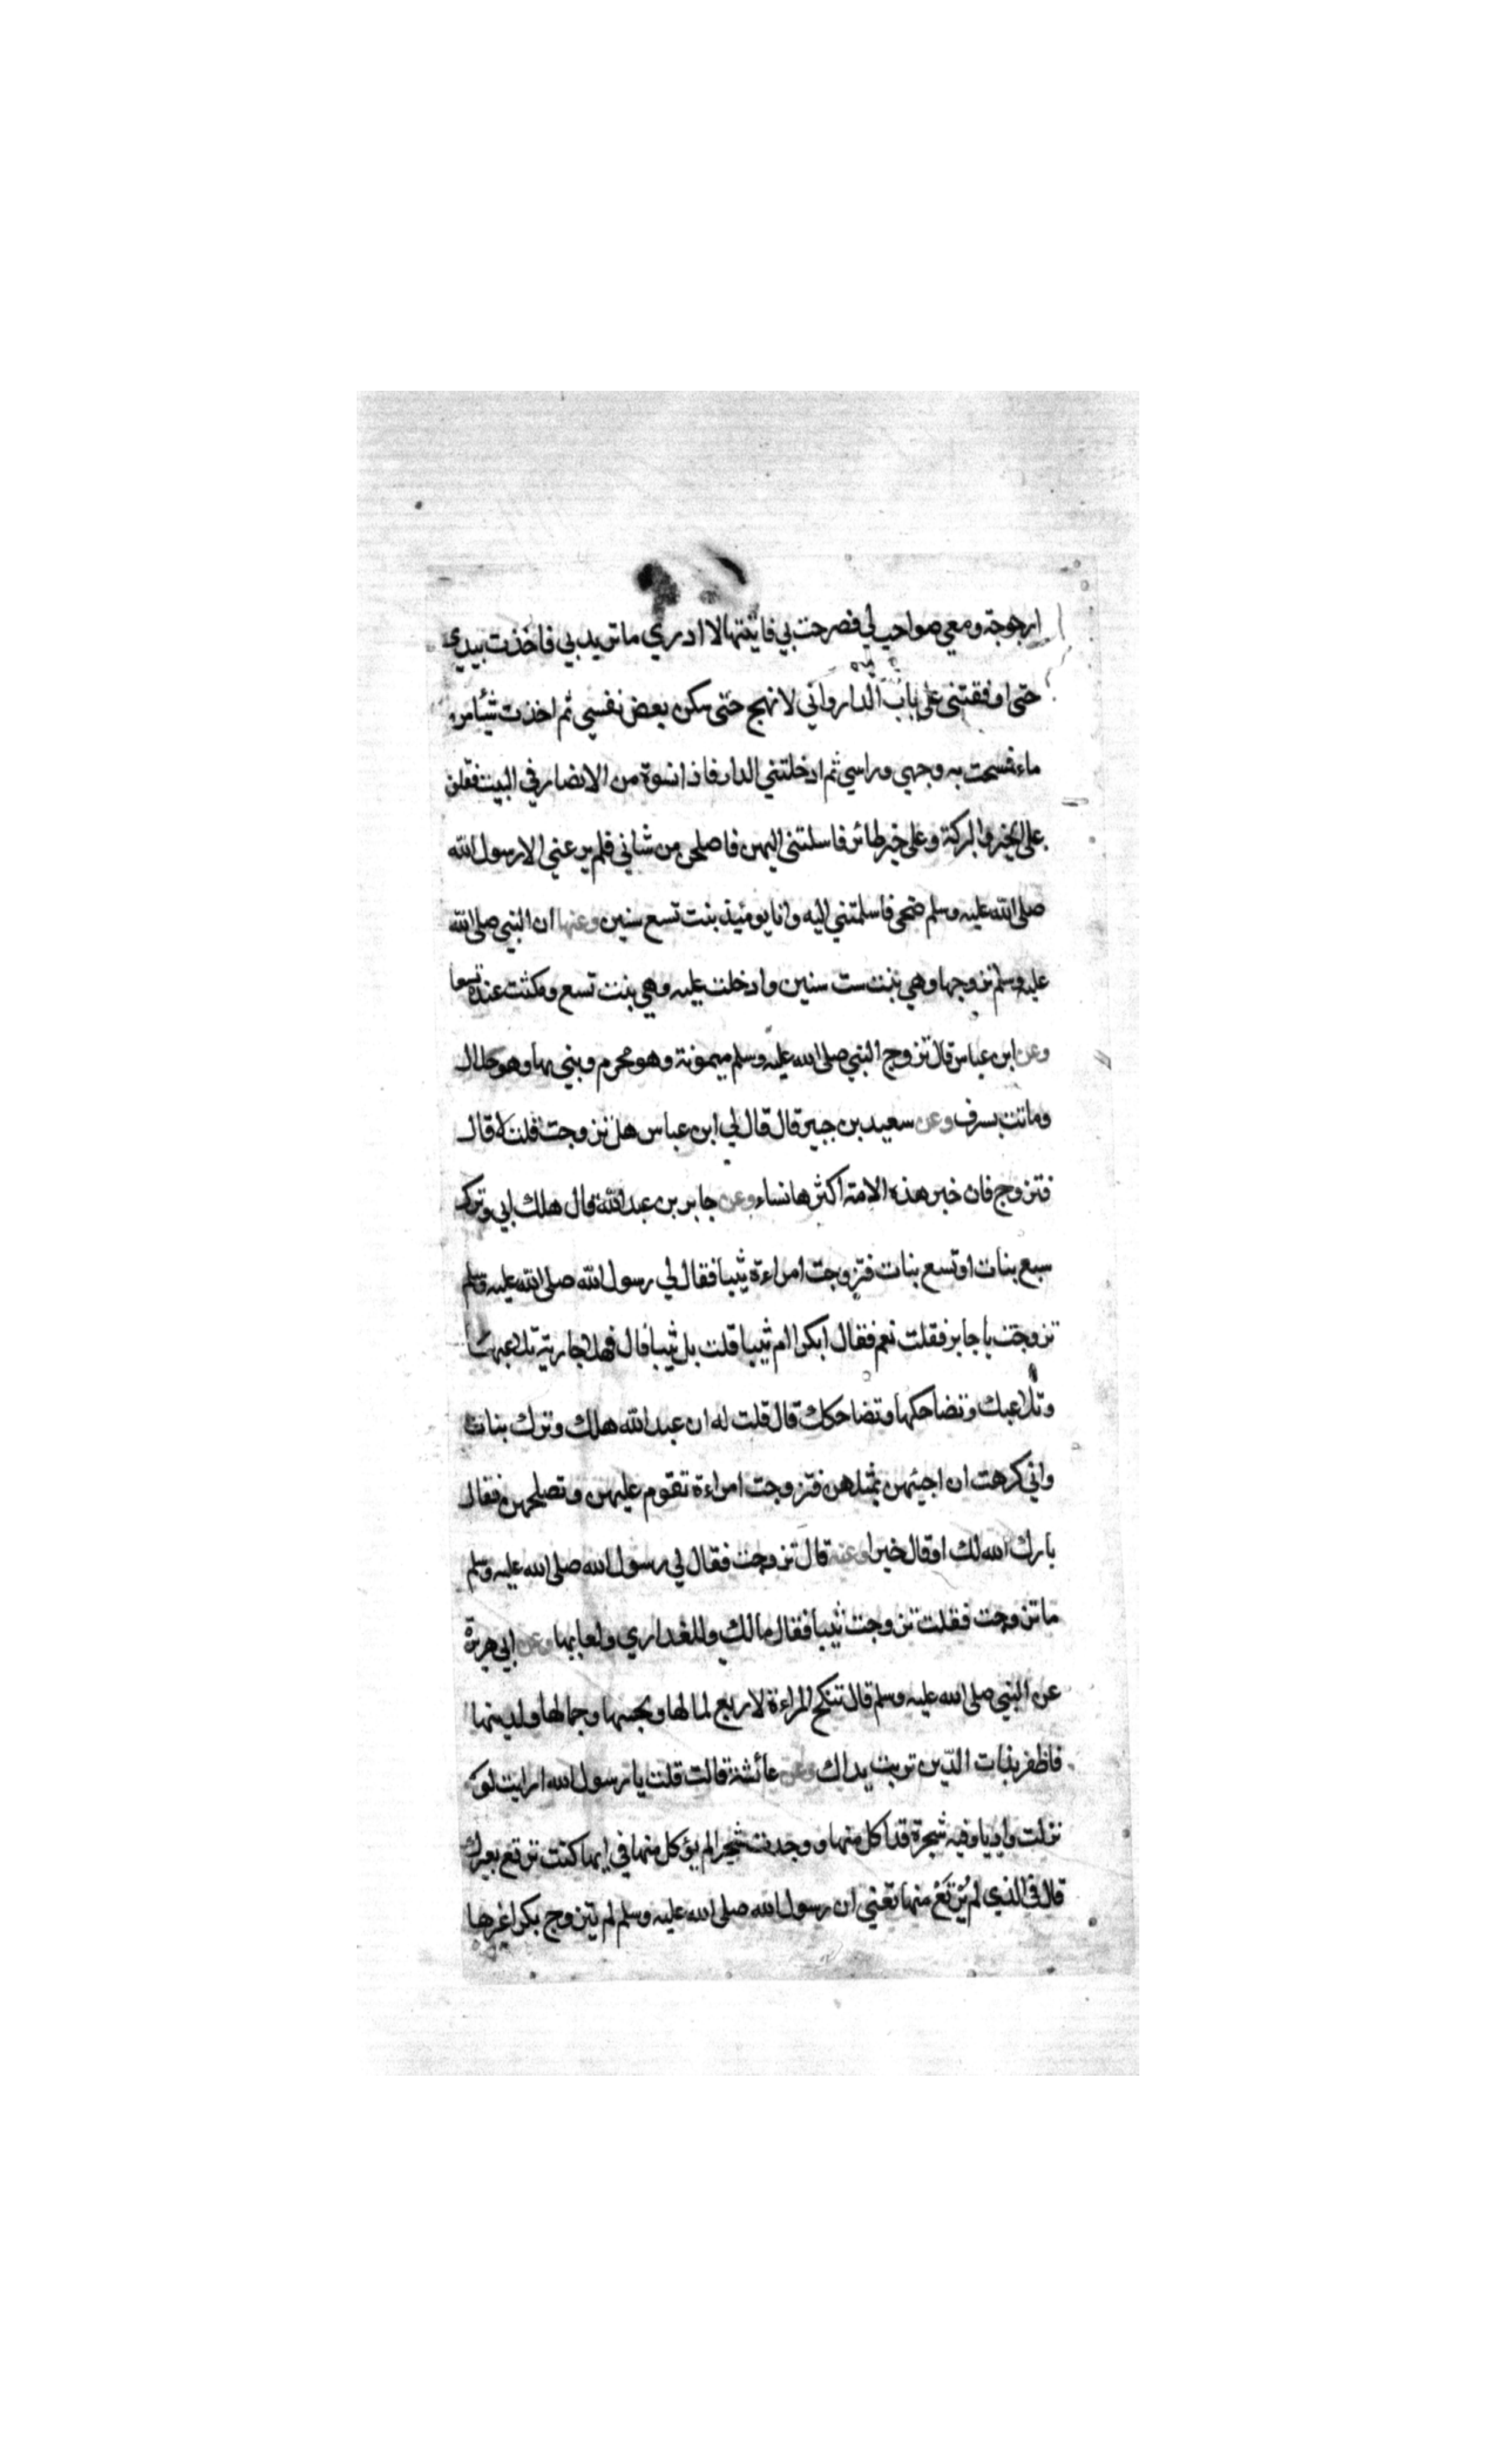 ارجوجة ومعي صواحب لي فصرخت بي فاتيتها لا ادري ما تريد بي فاخذت بيدي
حتى اوقفتني على باب الدار واني لانهج حتى سكن بعض نفسي ثم اخذت شيئا من
ماء فمسحت به وجهي وراسي ثم ادخلتني الدار فاذا نسوة من الانصار في البيت فقلن
على الخير والبركة وعلى خير طائر فاسلمتني اليهن فاصلحن من شاني فلم يرعني الا رسول الله
صلى الله عليه وسلم ضحى فاسلمتني اليه وانا يومئيذ بنت تسع سنين وعنها ان النبي صلى الله
عليه وسلم تزوجها وهي بنت ست سنين وادخلت عليه وهي بنت تسع ومكثت عنده تسعا
وعن ابن عباس قال تزوج النبي صلى الله عليه وسلم ميمونة وهو محرم وبني بها وهو حلال
وماتت بسرف وعن سعيد بن جبير قال قال لي ابن عباس هل تزوجت قلت لا قال
فتزوج فان خير هذه الامة اكثرها نساء وعن جابر بن عبد الله قال هلك ابي وترك
سبع بنات او تسع بنات فتزوجت امراءة ثيبا فقال لي رسول الله صلى الله عليه وسلم
تزوجت يا جابر فقلت نعم فقال ابكرا ام ثيبا قلت بل ثيبا قال فهلا جارية تلاعبها
وتلاعبك وتضاحكها وتضاحكك قال قلت له ان عبد الله هلك وترك بنات
واني كرهت ان اجيئهن بمثلهن فتزوجت امراءة تقوم عليهن وتصلحهن فقال
بارك الله لك او قال خيرا وعنه قال تزوجت فقال لي رسول الله صلى الله عليه وسلم
ما تزوجت فقلت تزوجت ثيبا فقال مالك وللعذاري ولعابها وعن ابي هريرة
عن النبي صلى الله عليه وسلم قال تنكح المراءة لاربع لمالها وبحسبها وجمالها ولدينها
فاظفر بذات الدين تربت يداك وعن عائشة قالت قلت يا رسول الله ارايت لو
نزلت واديا وفيه شجرة قد اكل منها ووجدت شجرا لم يؤكل منها في ايها كنت ترتع بعيرك
قال في الذي لم يُرْتَعْ منها تعني ان رسول الله صلى الله عليه وسلم لم يتزوج بكرا غيرها